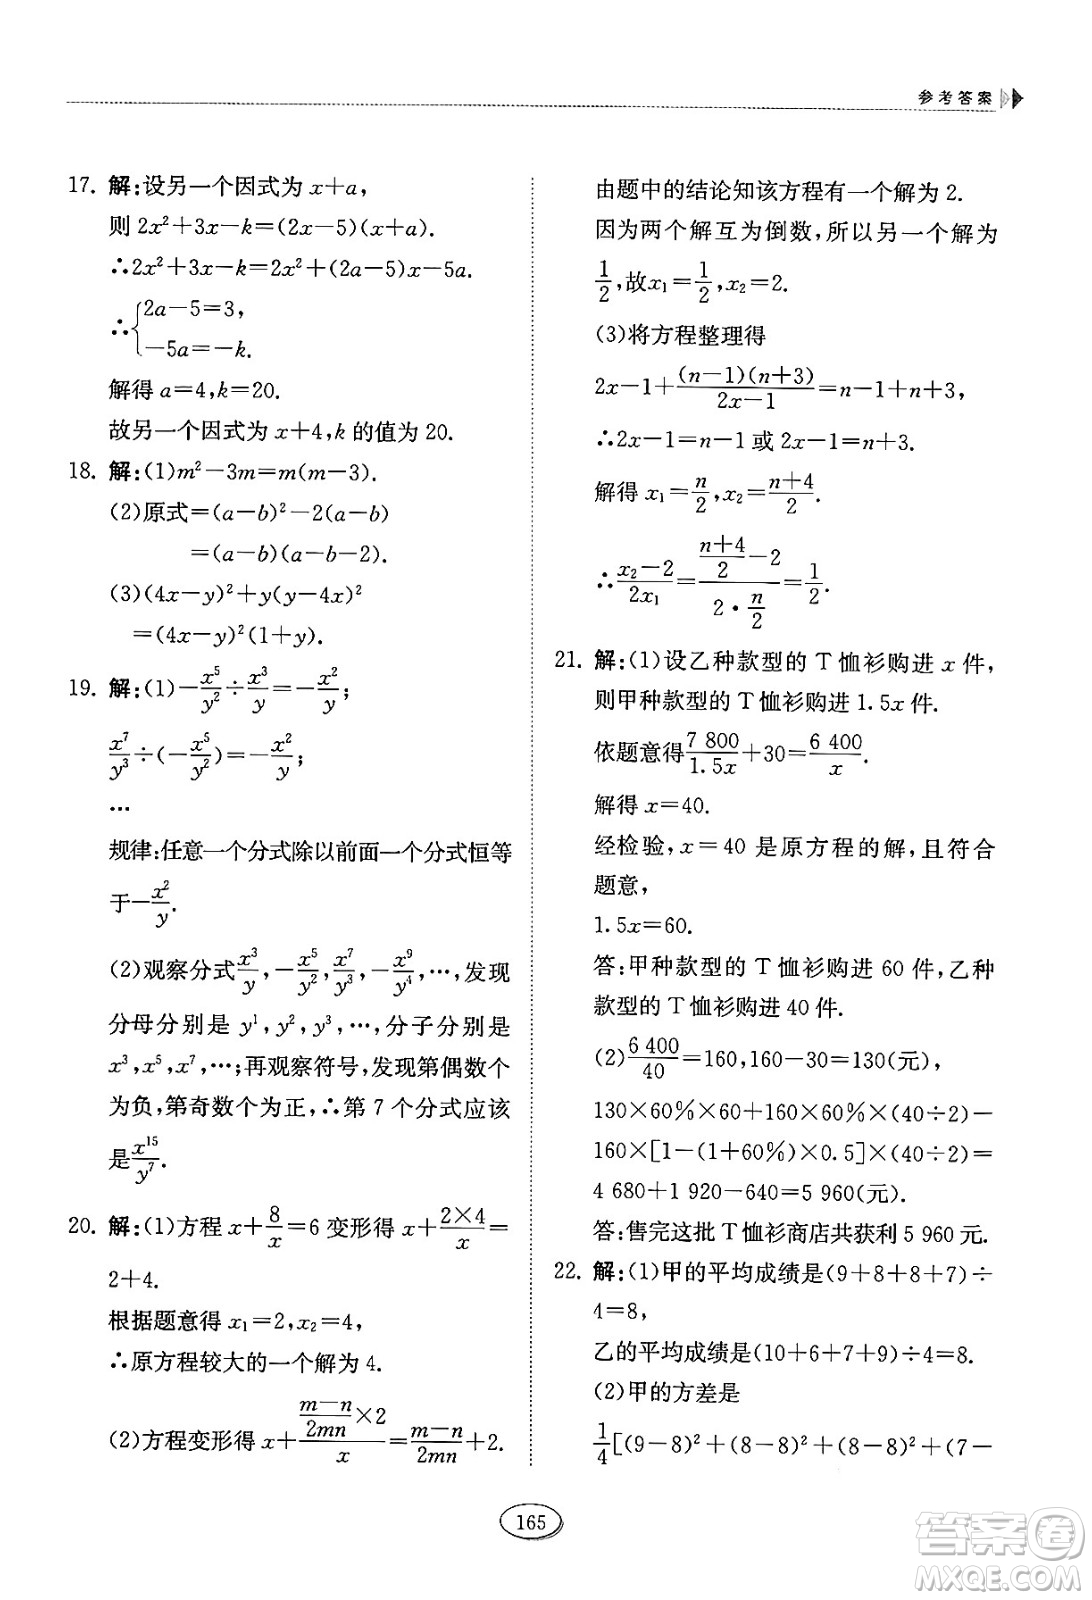 参考答案
17. 解:设另一个因式为 x+a,
则 2x²+3x-k=(2x-5)(x+a).
∴2x²+3x-k=2x²+(2a-5)x-5a.
∴{2a-5=3,
-5a=-k.
解得 a=4,k=20.
故另一个因式为 x+4,k 的值为 20.
18. 解:(1)m²-3m=m(m-3).
(2)原式=(a-b)²-2(a-b)
=(a-b)(a-b-2).
(3)(4x-y)²+y(y-4x)²
=(4x-y)²(1+y).
19. 解:(1)-x⁵/y²÷x³/y=-x²/y;
x⁷/y³÷(-x⁵/y²)=-x²/y;
…
规律:任意一个分式除以前面一个分式恒等
于-x²/y.
(2)观察分式x³/y,-x⁵/y²,x⁷/y³,-x⁹/y⁴,…,发现
分母分别是 y¹,y²,y³,…,分子分别是
x³,x⁵,x⁷,…;再观察符号,发现第偶数个
为负,第奇数个为正,∴第 7 个分式应该
是x¹⁵/y⁷.
20. 解:(1)方程 x+8/x=6 变形得 x+(2×4)/x=
2+4.
根据题意得 x₁=2,x₂=4,
∴原方程较大的一个解为 4.
(2)方程变形得 x+((m-n)/2mn×2)/x=(m-n)/2mn+2.
由题中的结论知该方程有一个解为 2.
因为两个解互为倒数,所以另一个解为
1/2,故x₁=1/2,x₂=2.
(3)将方程整理得
2x-1+(n-1)(n+3)/(2x-1)=n-1+n+3,
∴2x-1=n-1 或 2x-1=n+3.
解得 x₁=n/2,x₂=(n+4)/2.
∴(x₂-2)/2x₁=((n+4)/2-2)/(2·n/2)=1/2.
21. 解:(1)设乙种款型的 T 恤衫购进 x 件,
则甲种款型的 T 恤衫购进 1.5x 件.
依题意得7 800/1.5x+30=6 400/x.
解得 x=40.
经检验,x=40 是原方程的解,且符合
题意,
1.5x=60.
答:甲种款型的 T 恤衫购进 60 件,乙种
款型的 T 恤衫购进 40 件.
(2)6 400/40=160,160-30=130(元),
130×60%×60+160×60%×(40÷2)-
160×[1-(1+60%)×0.5]×(40÷2)=
4 680+1 920-640=5 960(元).
答:售完这批 T 恤衫商店共获利 5 960元.
22. 解:(1)甲的平均成绩是(9+8+8+7)÷
4=8,
乙的平均成绩是(10+6+7+9)÷4=8.
(2)甲的方差是
1/4[(9-8)²+(8-8)²+(8-8)²+(7-
165
答案卷
MXQE.COM